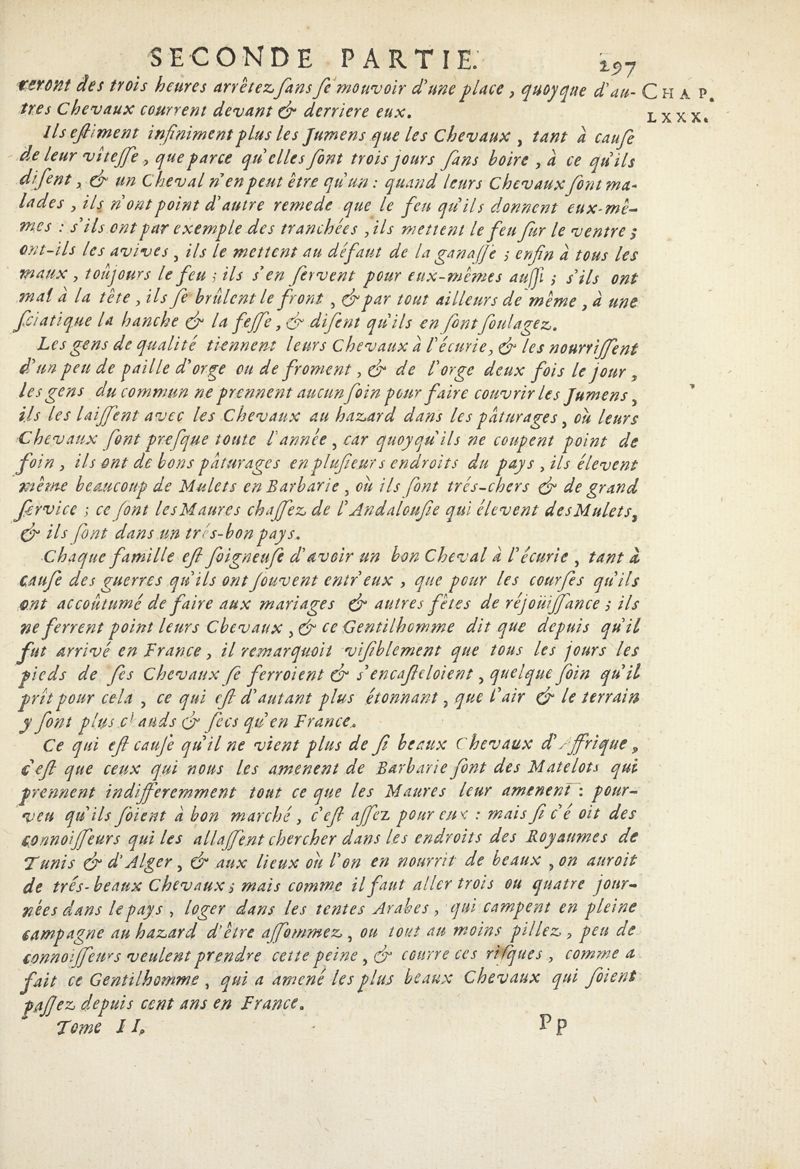 SECONDE PARTIE. 297
reront des trois heures arrêtez sans se mouvoir d'une place, quoyque d'au- CHAP.
tres Chevaux courrent devant & derriere eux. LXXX.
Ils estiment infiniment plus les Jumens que les Chevaux, tant à cause
de leur vîtesse, que parce qu'elles sont trois jours sans boire, à ce qu'ils
disent, & un Cheval n'en peut être qu'un : quand leurs Chevaux sont ma-
lades, ils n'ont point d'autre remede que le feu qu'ils donnent eux-mê-
mes : s'ils ont par exemple des tranchées, ils mettent le feu sur le ventre ;
ont-ils les avives, ils le mettent au défaut de la ganasse ; enfin à tous les
maux, toûjours le feu ; ils s'en servent pour eux-mêmes aussi ; s'ils ont
mal à la tête, ils se brûlent le front, & par tout ailleurs de même, à une
sciatique la hanche & la fesse, & disent qu'ils en sont soulagez.
Les gens de qualité tiennent leurs Chevaux à l'écurie, & les nourrissent
d'un peu de paille d'orge ou de froment, & de l'orge deux fois le jour,
les gens du commun ne prennent aucun soin pour faire couvrir les Jumens,
ils les laissent avec les Chevaux au hazard dans les pâturages, où leurs
Chevaux sont presque toute l'année, car quoyqu'ils ne coupent point de
foin, ils ont de bons pâturages en plusieurs endroits du pays, ils élevent
même beaucoup de Mulets en Barbarie, où ils sont trés-chers & de grand
service ; ce sont les Maures chassez de l'Andalousie qui élevent des Mulets,
& ils sont dans un trés-bon pays.
Chaque famille est soigneuse d'avoir un bon Cheval à l'écurie, tant à
cause des guerres qu'ils ont souvent entr'eux, que pour les courses qu'ils
ont accoûtumé de faire aux mariages & autres fêtes de réjoüissance ; ils
ne ferrent point leurs Chevaux, & ce Gentilhomme dit que depuis qu'il
fut arrivé en France, il remarquoit visiblement que tous les jours les
pieds de ses Chevaux se ferroient & s'encasteloient, quelque soin qu'il
prît pour cela, ce qui est d'autant plus étonnant, que l'air & le terrain
y sont plus chauds & secs qu'en France.
Ce qui est cause qu'il ne vient plus de si beaux Chevaux d'Affrique,
c'est que ceux qui nous les amenent de Barbarie sont des Matelots qui
prennent indifferemment tout ce que les Maures leur amenent : pour-
veu qu'ils soient à bon marché, c'est assez pour eux : mais si c'é oit des
connoisseurs qui les allassent chercher dans les endroits des Royaumes de
Tunis & d'Alger, & aux lieux où l'on en nourrit de beaux, on auroit
de trés-beaux Chevaux ; mais comme il faut aller trois ou quatre jour-
nées dans le pays, loger dans les tentes Arabes, qui campent en pleine
campagne au hazard d'être assommez, ou tout au moins pillez, peu de
connoisseurs veulent prendre cette peine, & courre ces risques, comme a
fait ce Gentilhomme, qui a amené les plus beaux Chevaux qui soient
passez depuis cent ans en France.
Tome II. Pp